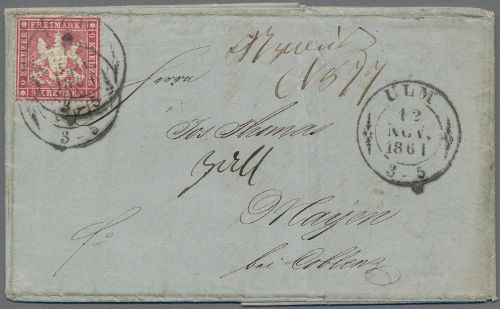 FREIMARKE
9 KREUZER
9 KREUZER
9 KREUZER
3 - 5
ULM
12
NOV.
1861
3 - 5
No 77
Herrn
Jos Thomas
Mayen
bei Coblenz
fr.